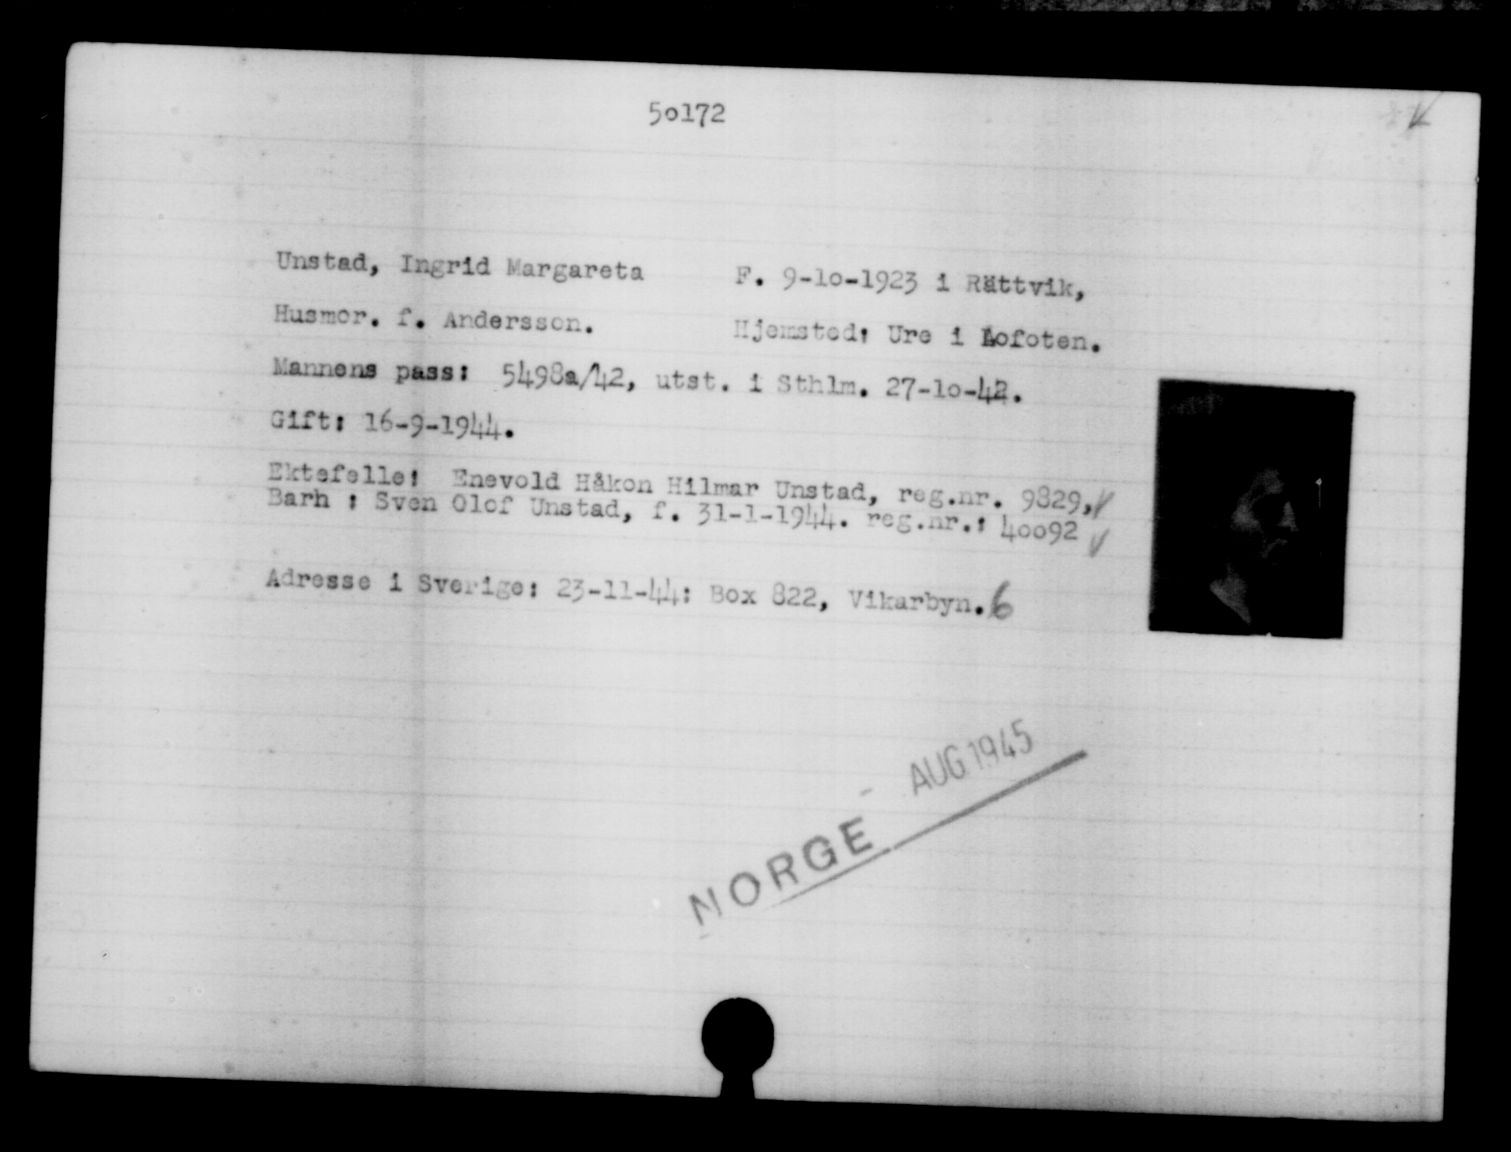 50172
Unstad, Ingrid Margareta F. 9-10-1923 i Rättvik,
Husmor. f. Andersson. Hjemsted: Ure i Lofoten.
Mannens pass: 5498a/42, utst. i Sthlm. 27-10-42.
Gift: 16-9-1944.
Ektefelle: Enevold Håkon Hilmar Unstad, reg.nr. 9829,
Barh : Sven Olof Unstad, f. 31-1-1944. reg.nr.: 40092
Adresse i Sverige: 23-11-44: Box 822, Vikarbyn. 6
- AUG 1945
NORGE